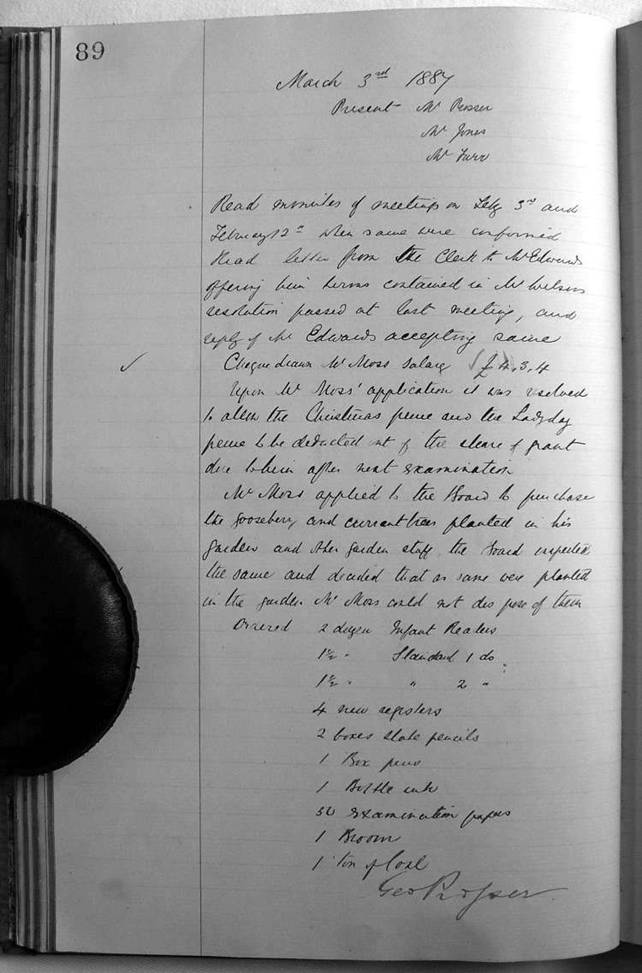 89
March 3rd 1887
Present Mr Prosser
Mr Jones
Mr Farr
Read minutes of meetings on Feby 3rd and
February 12th when same were confirmed
Read letter from the Clerk to Mr Edwards
offering him terms contained in Mr Wilsons
resolution passed at last meeting, and
reply of Mr Edwards accepting same
Cheque drawn Mr Moss salary £4.3.4
Upon Mr Moss' application it was resolved
to allow the Christmas pence and the Ladyday
pence to be deducted out of the share of grant
due to him after next examination
Mr Moss applied to the Board to purchase
the gooseberry and currant trees planted in his
garden and other garden stuff the Board inspected
the same and decided that as same were planted
in the garden Mr Moss could not dispose of them
Ordered 2 dozen Infant Readers
1½ " Standard 1 do
1½ " " 2 "
4 new registers
2 boxes slate pencils
1 Box pens
1 Bottle ink
50 examination papers
1 Broom
1 ton of Coal
Geo Prosser